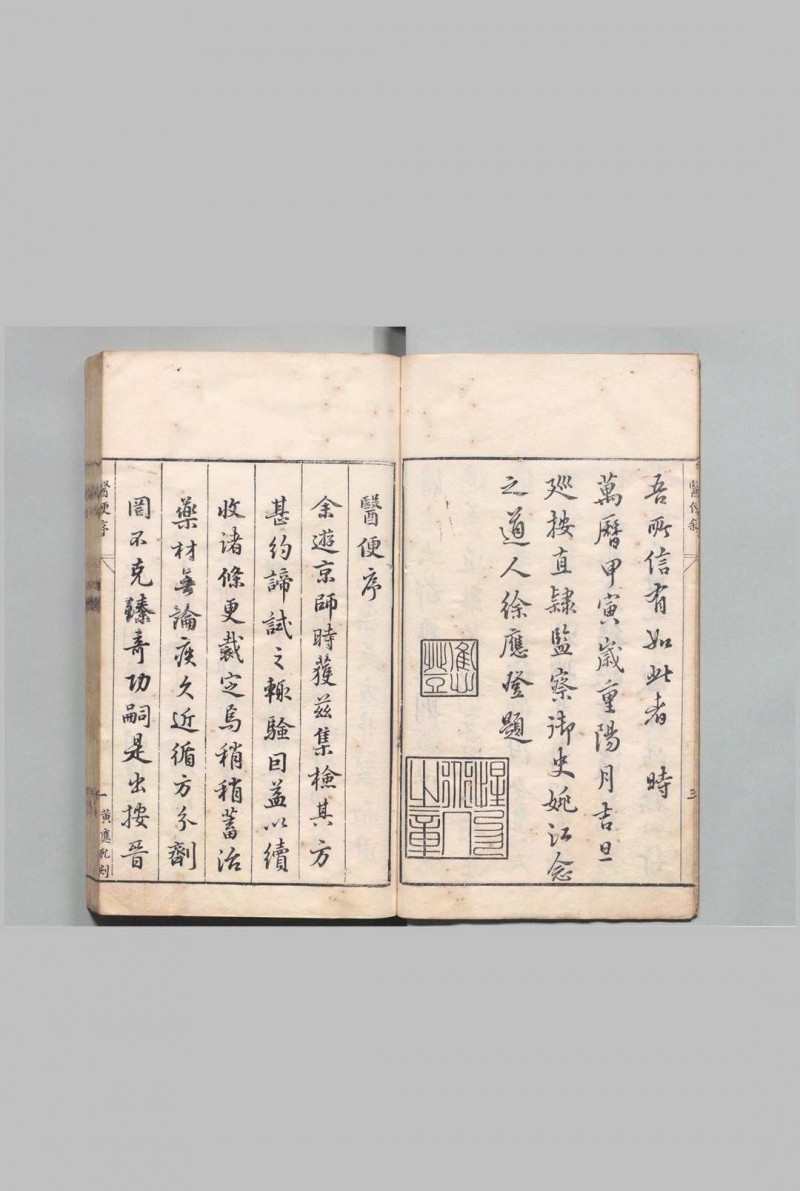 吾所信有如此者 時
萬曆甲寅歲重陽月吉旦
廵按直隸監察御史姚江念
之道人徐應登題
三
醫便序
余遊京師時獲茲集檢其方
甚約諦試之輒驗因益以續
收诸條更裁定焉稍稍蓄治
藥材無論疾久近循方分劑
罔不克臻奇功嗣是出按晉
醫便序
一
黄應
刻